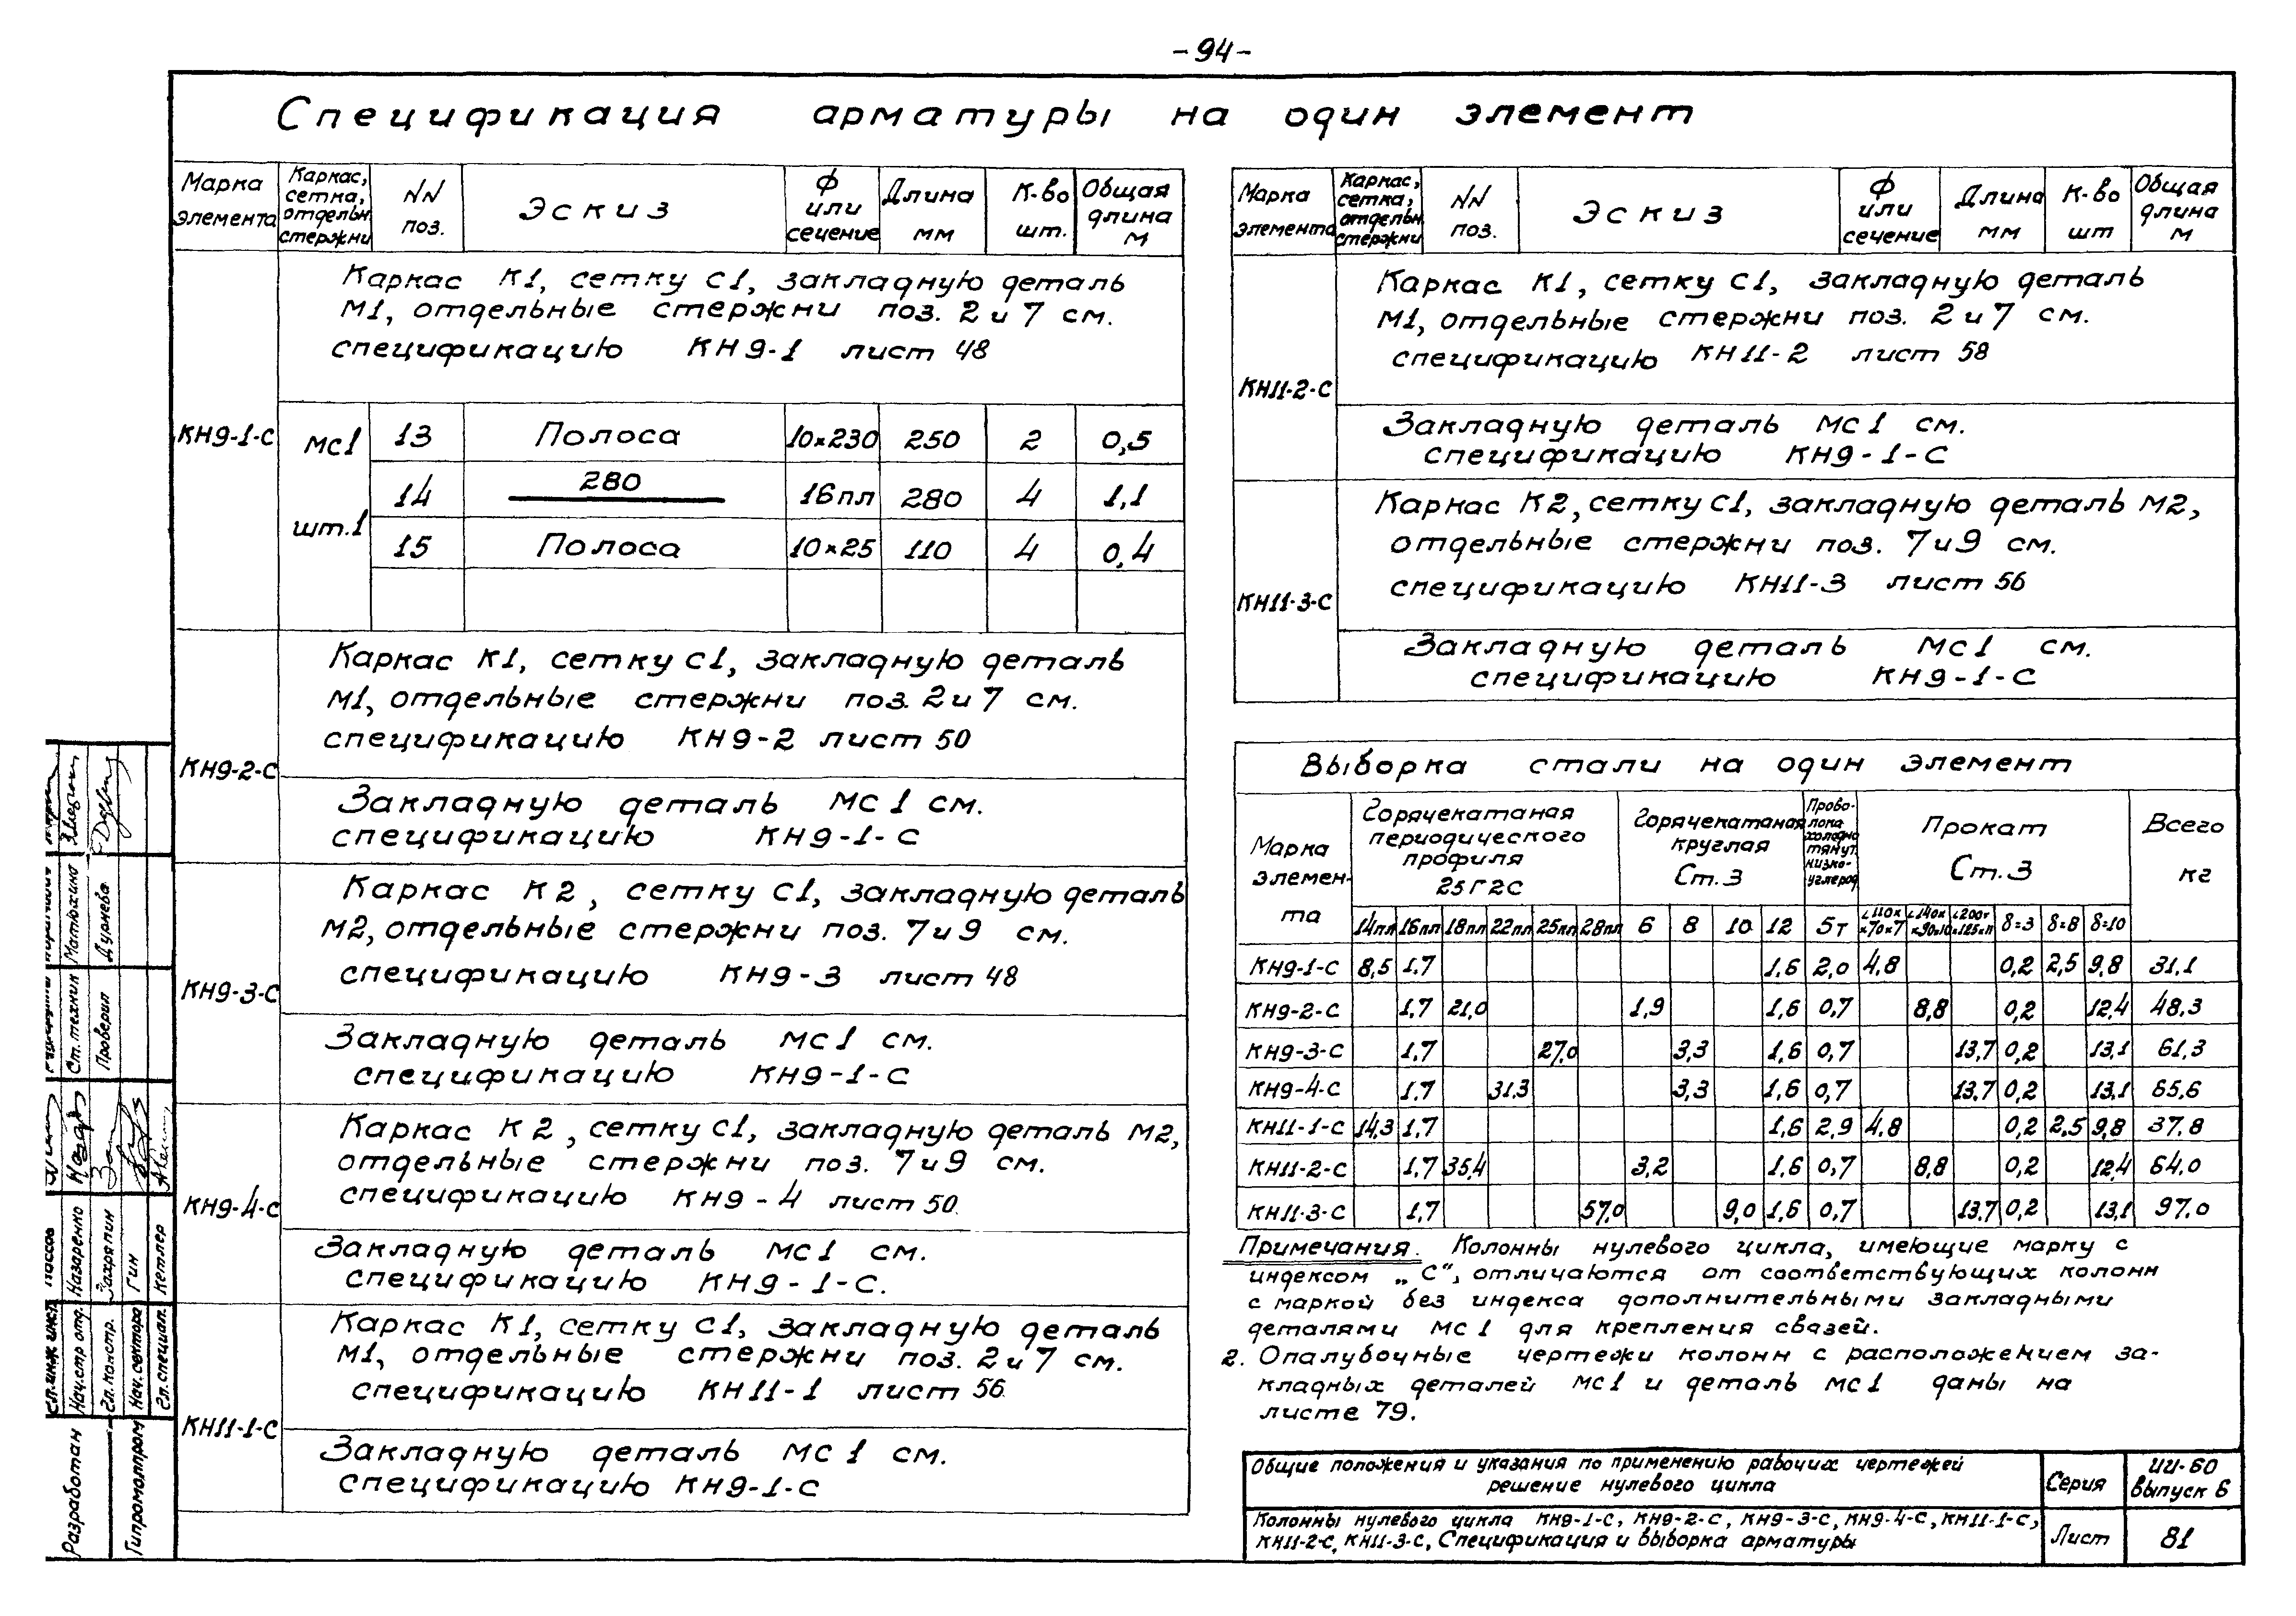 -94-
Спецификация арматуры на один элемент
Марка элемента | Каркас, сетка, отдельн. стержни | NN поз. | Эскиз | Ф или сечение | Длина мм | К-во шт. | Общая длина м
КН9-1-С
Каркас К1, сетку С1, закладную деталь
М1, отдельные стержни поз. 2 и 7 см.
спецификацию КН9-1 лист 48
МС1 шт.1
13 Полоса 10×230 250 2 0,5
14 280 16пл 280 4 1,1
15 Полоса 10×25 110 4 0,4
КН9-2-С
Каркас К1, сетку С1, закладную деталь
М1, отдельные стержни поз. 2 и 7 см.
спецификацию КН9-2 лист 50
Закладную деталь МС1 см.
спецификацию КН9-1-С
КН9-3-С
Каркас К2, сетку С1, закладную деталь
М2, отдельные стержни поз. 7 и 9 см.
спецификацию КН9-3 лист 48
Закладную деталь МС1 см.
спецификацию КН9-1-С
КН9-4-С
Каркас К2, сетку С1, закладную деталь М2,
отдельные стержни поз. 7 и 9 см.
спецификацию КН9-4 лист 50.
Закладную деталь МС1 см.
спецификацию КН9-1-С.
КН11-1-С
Каркас К1, сетку С1, закладную деталь
М1, отдельные стержни поз. 2 и 7 см.
спецификацию КН11-1 лист 56.
Закладную деталь МС1 см.
спецификацию КН9-1-С
Марка элемента | Каркас, сетка, отдельн. стержни | NN поз. | Эскиз | Ф или сечение | Длина мм | К-во шт | Общая длина м
КН11-2-С
Каркас К1, сетку С1, закладную деталь
М1, отдельные стержни поз. 2 и 7 см.
спецификацию КН11-2 лист 58
Закладную деталь МС1 см.
спецификацию КН9-1-С
КН11-3-С
Каркас К2, сетку С1, закладную деталь М2,
отдельные стержни поз. 7 и 9 см.
спецификацию КН11-3 лист 56
Закладную деталь МС1 см.
спецификацию КН9-1-С
Выборка стали на один элемент
Марка элемен-та | Горячекатаная периодического профиля 25Г2С | Горячекатаная круглая Ст.3 | Прово-лока холодно тянут. низко-углерод. | Прокат Ст.3 | Всего кг
14пл 16пл 18пл 22пл 25пл 28пл 6 8 10 12 5т ∠110××70×7 ∠140××90×10 ∠200××125×11 δ=3 δ=8 δ=10
КН9-1-С 8,5 1.7 1,6 2,0 4,8 0,2 2,5 9,8 31.1
КН9-2-С 1.7 21,0 1,9 1,6 0,7 8,8 0,2 12,4 48,3
КН9-3-С 1.7 27,0 3,3 1,6 0,7 13,7 0,2 13,1 61.3
КН9-4-С 1.7 31.3 3,3 1,6 0,7 13,7 0,2 13,1 65.6
КН11-1-С 14,3 1.7 1,6 2,9 4,8 0,2 2,5 9,8 37.8
КН11-2-С 1.7 35,4 3,2 1,6 0,7 8,8 0,2 12,4 64.0
КН11-3-С 1.7 57,0 9,0 1,6 0,7 13,7 0,2 13,1 97.0
Примечания. Колонны нулевого цикла, имеющие марку с
индексом „С“, отличаются от соответствующих колонн
с маркой без индекса дополнительными закладными
деталями МС1 для крепления связей.
2. Опалубочные чертежи колонн с расположением за-
кладных деталей МС1 и деталь МС1 даны на
листе 79.
Общие положения и указания по применению рабочих чертежей
решение нулевого цикла
Серия
ИИ-60
Выпуск 6
Колонны нулевого цикла КН9-1-С, КН9-2-С, КН9-3-С, КН9-4-С, КН11-1-С,
КН11-2-С, КН11-3-С, Спецификация и выборка арматуры
Лист
81
Разработан
Гипромолпром
Гл.инж.инст.
Нач.стр отд. Назаренко
Гл.констр. Захряпин
Нач.сектора Гин
Гл.специал. Кетлер
Ст.техник Матюхина
Проверил Дурнева